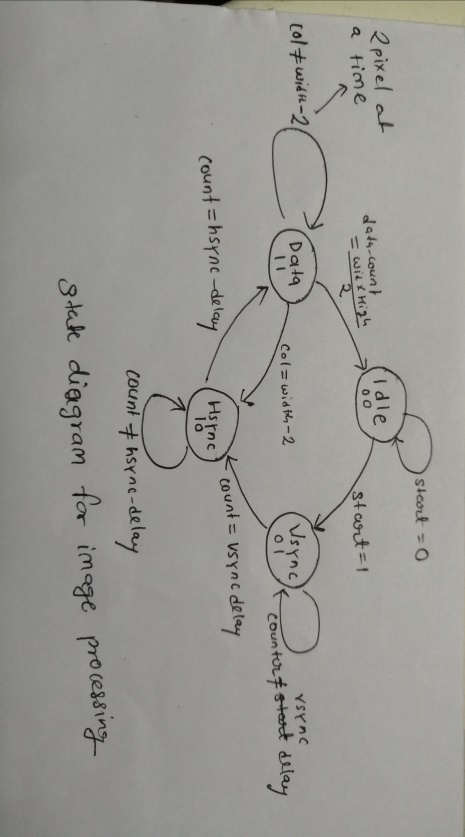 start = 0
2 pixel at
a time
Idle
00
data-count
= wid x High
2
start=1
col ≠ width-2
Data
11
col = width-2
Vsync
01
vsync
counter ≠ start delay
count = hsync-delay
Hsync
10
count = vsync delay
count ≠ hsync-delay
state diagram for image processing